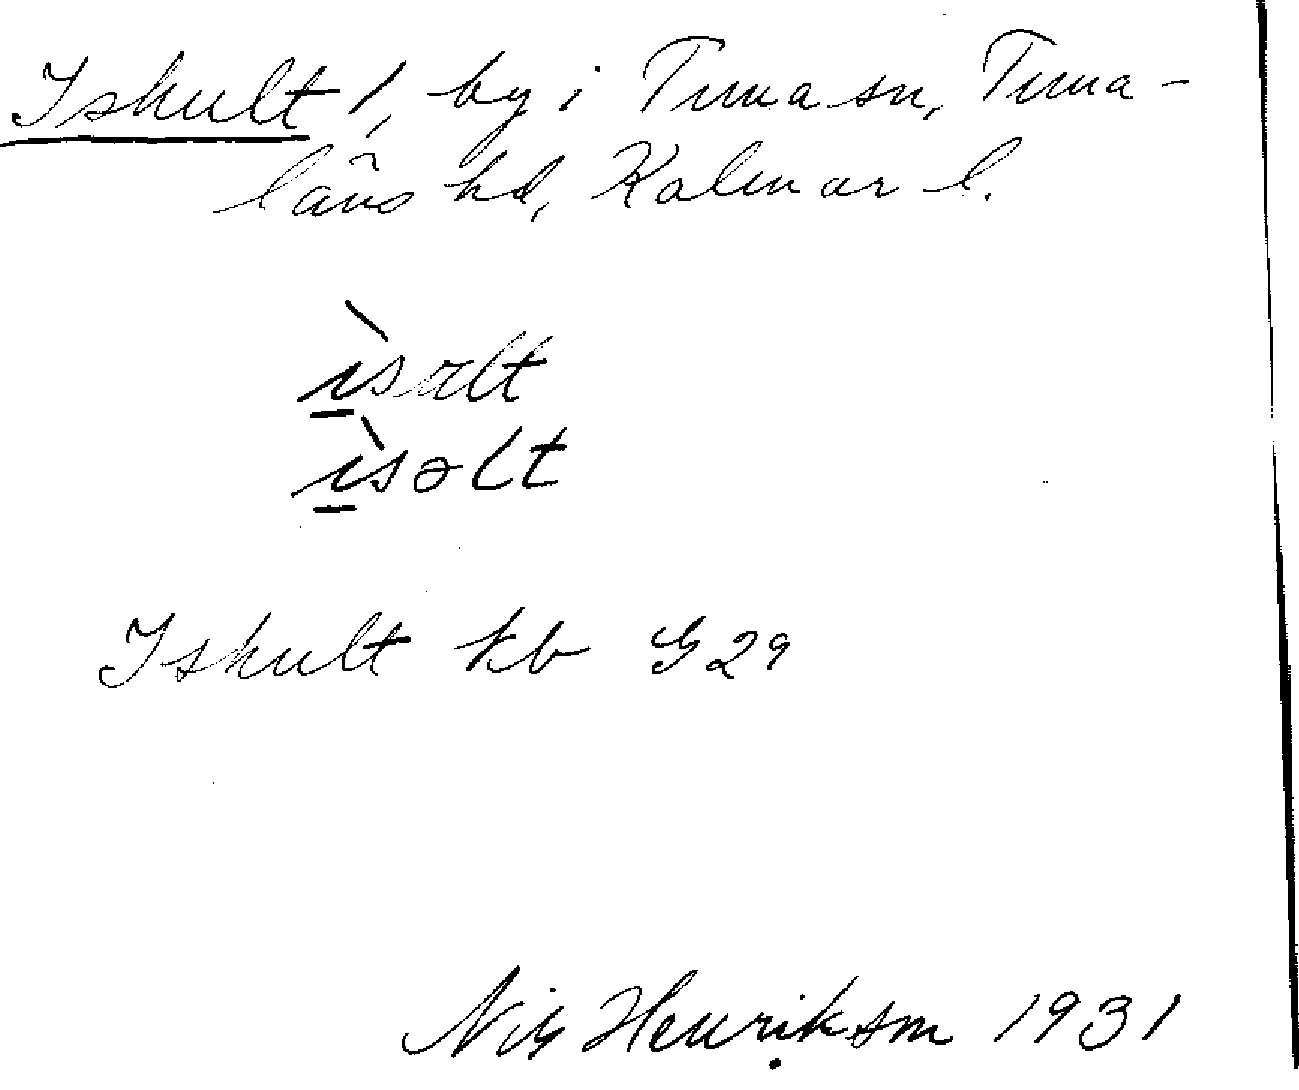 Iskult 1, by i Tuna sn, Tuna-
läns hd, Kalmar l.
ìsalt
ìsəlt
Iskult kb G29
Nils Henrikson 1931